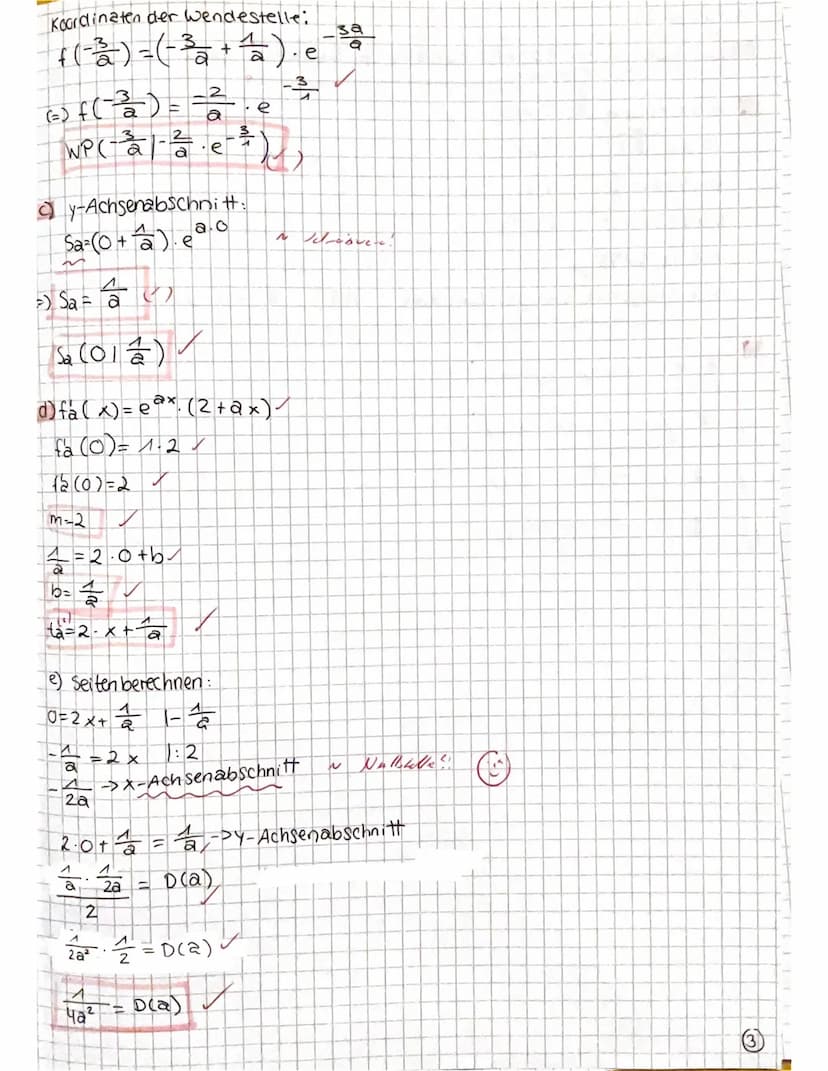 Koordinaten der Wendestelle:
f(-3/a) = (-3/a + 1/a) · e^(-3a/a)
(=) f(-3/a) = -2/a · e^(-3/1) ✓
WP(-3/a | -2/a · e^(-3/1)) (✓)
c) y-Achsenabschnitt:
Sa=(0 + 1/a) · e^(a·0)
=) Sa = 1/a (✓)
Sa (0 | 1/a) ✓
d) fa'(x) = e^(ax) · (2 + ax) ✓
fa'(0) = 1·2 ✓
fa'(0)=2 ✓
m=2 ✓
1/a = 2·0+b ✓
b= 1/a ✓
ta=2·x+ 1/a ✓
e) Seiten berechnen:
0=2x+ 1/a |- 1/a
-1/a = 2x |:2
-1/2a -> x-Achsenabschnitt ~ Nullstelle!!
2·0+ 1/a = 1/a -> y-Achsenabschnitt
(1/a · 1/2a)/2 = D(a) ✓
1/2a² · 1/2 = D(a) ✓
1/4a² = D(a) ✓
3